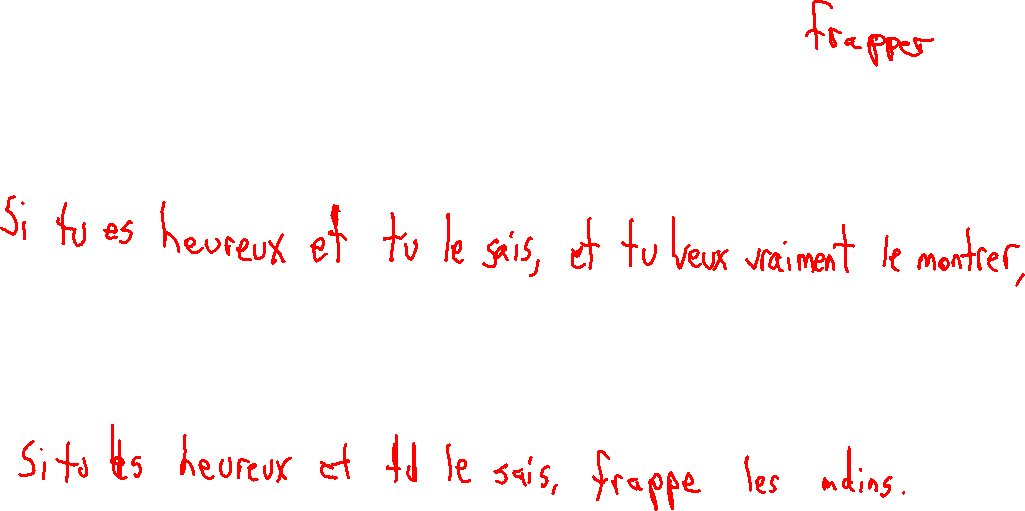 frapper
Si tu es heureux et tu le sais, et tu veux vraiment le montrer,
Si tu es heureux et tu le sais, frappe les mains.